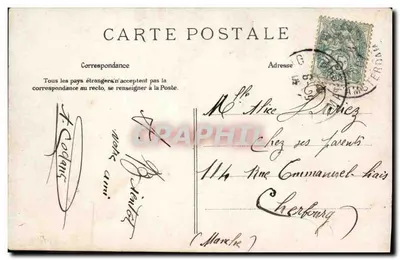 CARTE POSTALE
Correspondance
Adresse
Tous les pays étrangers n'acceptent pas la
correspondance au recto, se renseigner à la Poste.
A
Bientôt
votre ami
Mlle Alice
Chez ses parents
114 Rue Emmanuel Liais
Cherbourg
(Manche)